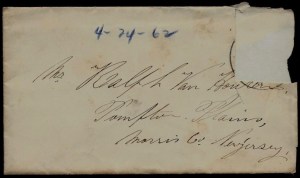 4-24-62
Mr Ralph Van Houten
Pompton Plains,
Morris Co. New Jersey.